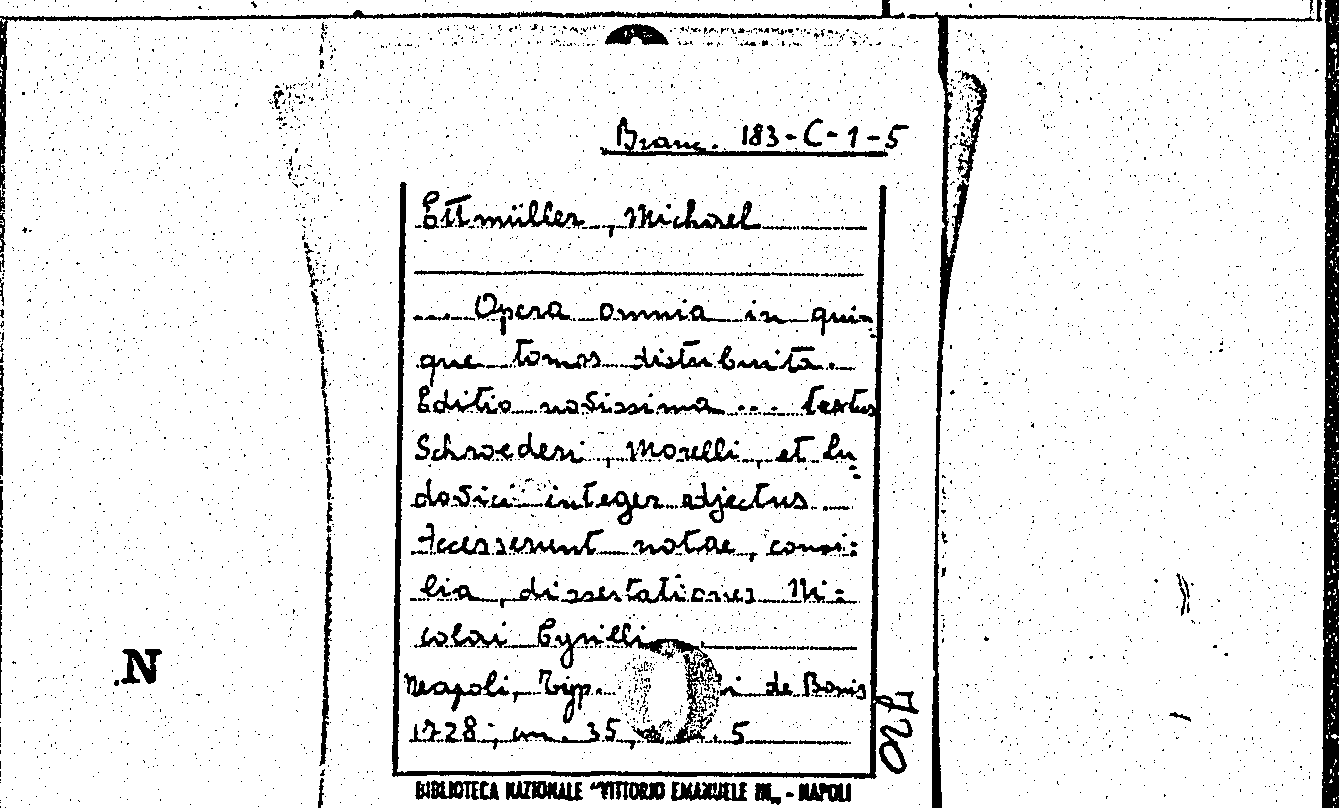 Branc. 183-C-1-5
Ettmüller, Michael
... Opera omnia in quin-
que tomos distributa...
Editio novissima ... textus
Schroederi, Morelli, et Lu-
dovici integer adjectus ...
Accesserunt notae, consi-
lia, dissertationes Ni-
colai Cyrilli
Neapoli, Typ. de Bonis
1728; cm. 35, 5
720
.N
BIBLIOTECA NAZIONALE "VITTORIO EMANUELE III" - NAPOLI